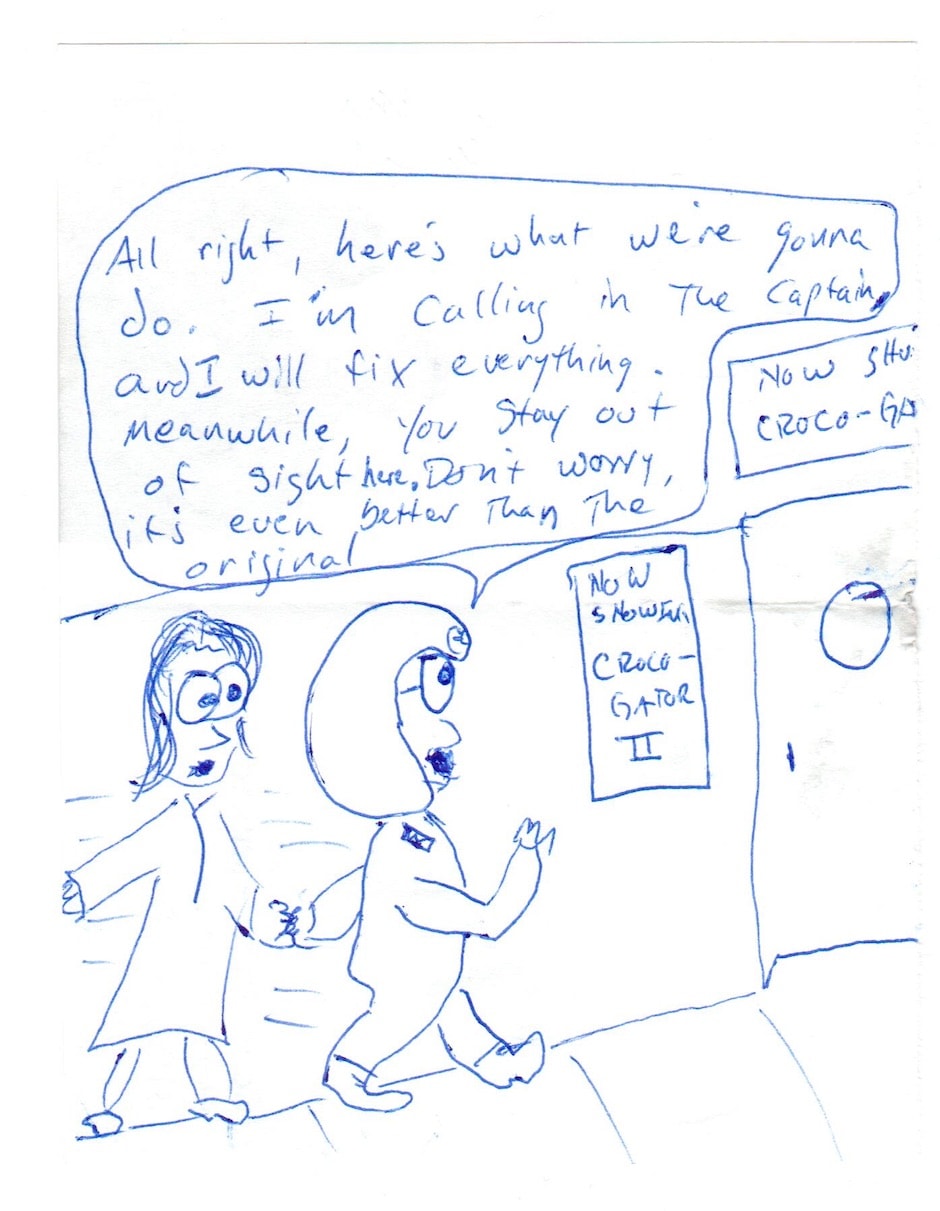 All right, here's what we're gonna
do. I'm calling in The Captain,
and I will fix everything.
Meanwhile, you stay out
of sight here. Don't worry,
it's even better than the
original
NOW SHO
CROCO-GA
NOW
SHOWING
CROCO-
GATOR
II